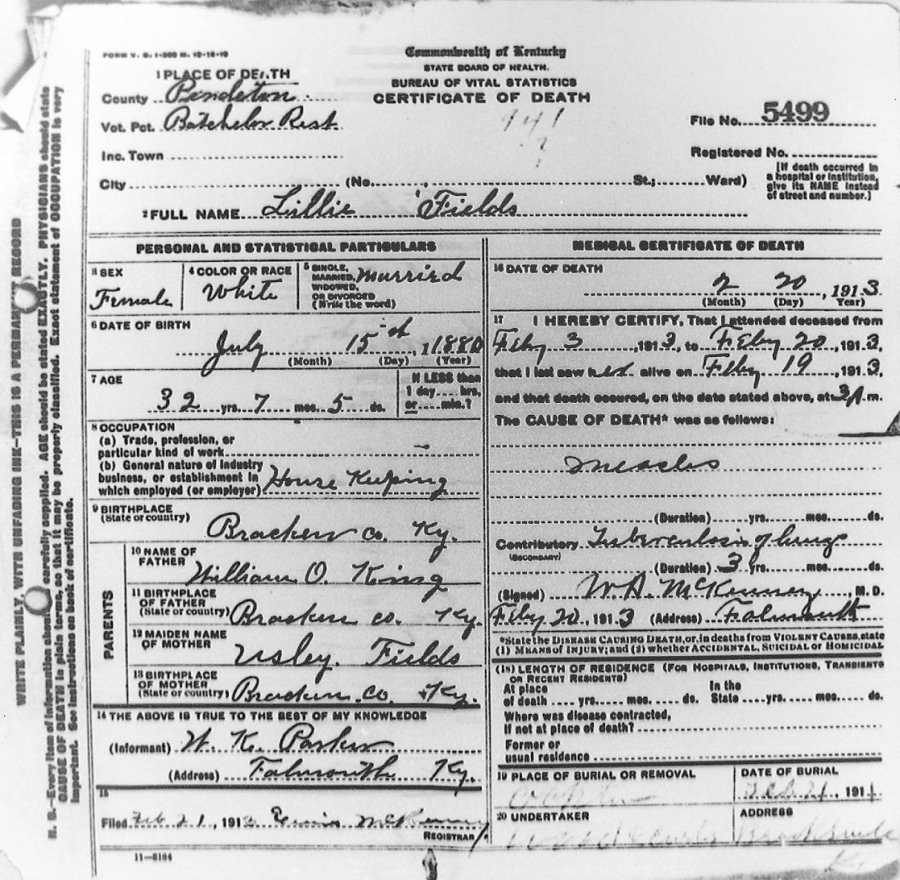 FORM V. S. 1-500 M. 10-16-10
Commonwealth of Kentucky
STATE BOARD OF HEALTH.
BUREAU OF VITAL STATISTICS
CERTIFICATE OF DEATH
1 PLACE OF DEATH
County Pendleton
Vot. Pct. Batchelor Rest
File No. 5499
Inc. Town
Registered No.
City (No. , St.; Ward)
[If death occurred in a hospital or institution, give its NAME instead of street and number.]
2 FULL NAME Lillie Fields
PERSONAL AND STATISTICAL PARTICULARS
3 SEX
Female
4 COLOR OR RACE
White
5 SINGLE, MARRIED, WIDOWED, OR DIVORCED (Write the word)
Married
6 DATE OF BIRTH
July 15th, 1880
(Month) (Day) (Year)
7 AGE
32 yrs. 7 mos. 5 ds.
If LESS than 1 day hrs. or min.?
8 OCCUPATION
(a) Trade, profession, or particular kind of work
(b) General nature of industry business, or establishment in which employed (or employer)
House Keeping
9 BIRTHPLACE
(State or country)
Bracken co. Ky.
PARENTS
10 NAME OF FATHER
William O. King
11 BIRTHPLACE OF FATHER
(State or country)
Bracken co. Ky.
12 MAIDEN NAME OF MOTHER
Usley. Fields
13 BIRTHPLACE OF MOTHER
(State or country)
Bracken co Ky.
14 THE ABOVE IS TRUE TO THE BEST OF MY KNOWLEDGE
(Informant) W. K. Parker
(Address) Falmouth Ky.
15
Filed Feb 21, 191
REGISTRAR
11—5184
MEDICAL CERTIFICATE OF DEATH
16 DATE OF DEATH
2 20, 1913
(Month) (Day) Year)
17 I HEREBY CERTIFY, That I attended deceased from
Feby 3, 1913, to Feby 20, 1913,
that I last saw her alive on Feby 19, 1913,
and that death occured, on the date stated above, at 3 A. m.
The CAUSE OF DEATH* was as follows:
Measles
(Duration) yrs. mos. ds.
Contributory Tuberculosis of lungs
(SECONDARY)
(Duration) 3 yrs. mos. ds.
(Signed) W. A. McKenney, M. D.
Feby 20, 1913 (Address) Falmouth
*State the DISEASE CAUSING DEATH, or, in deaths from VIOLENT CAUSES, state
(1) MEANS of INJURY; and (2) whether ACCIDENTAL, SUICIDAL or HOMICIDAL
(18) LENGTH OF RESIDENCE (FOR HOSPITALS, INSTITUTIONS, TRANSIENTS OR RECENT RESIDENTS)
At place of death yrs. mos. ds. In the State yrs. mos. ds.
Where was disease contracted, If not at place of death?
Former or usual residence
19 PLACE OF BURIAL OR REMOVAL
DATE OF BURIAL
Feb 21, 191
20 UNDERTAKER
ADDRESS
Brooksville
Ky
WRITE PLAINLY, WITH UNFADING INK—THIS IS A PERMANENT RECORD
N. B.—Every item of information should be carefully supplied. AGE should be stated EXACTLY. PHYSICIANS should state
CAUSE OF DEATH in plain terms, so that it may be properly classified. Exact statement of OCCUPATION is very
important. See instructions on back of certificate.